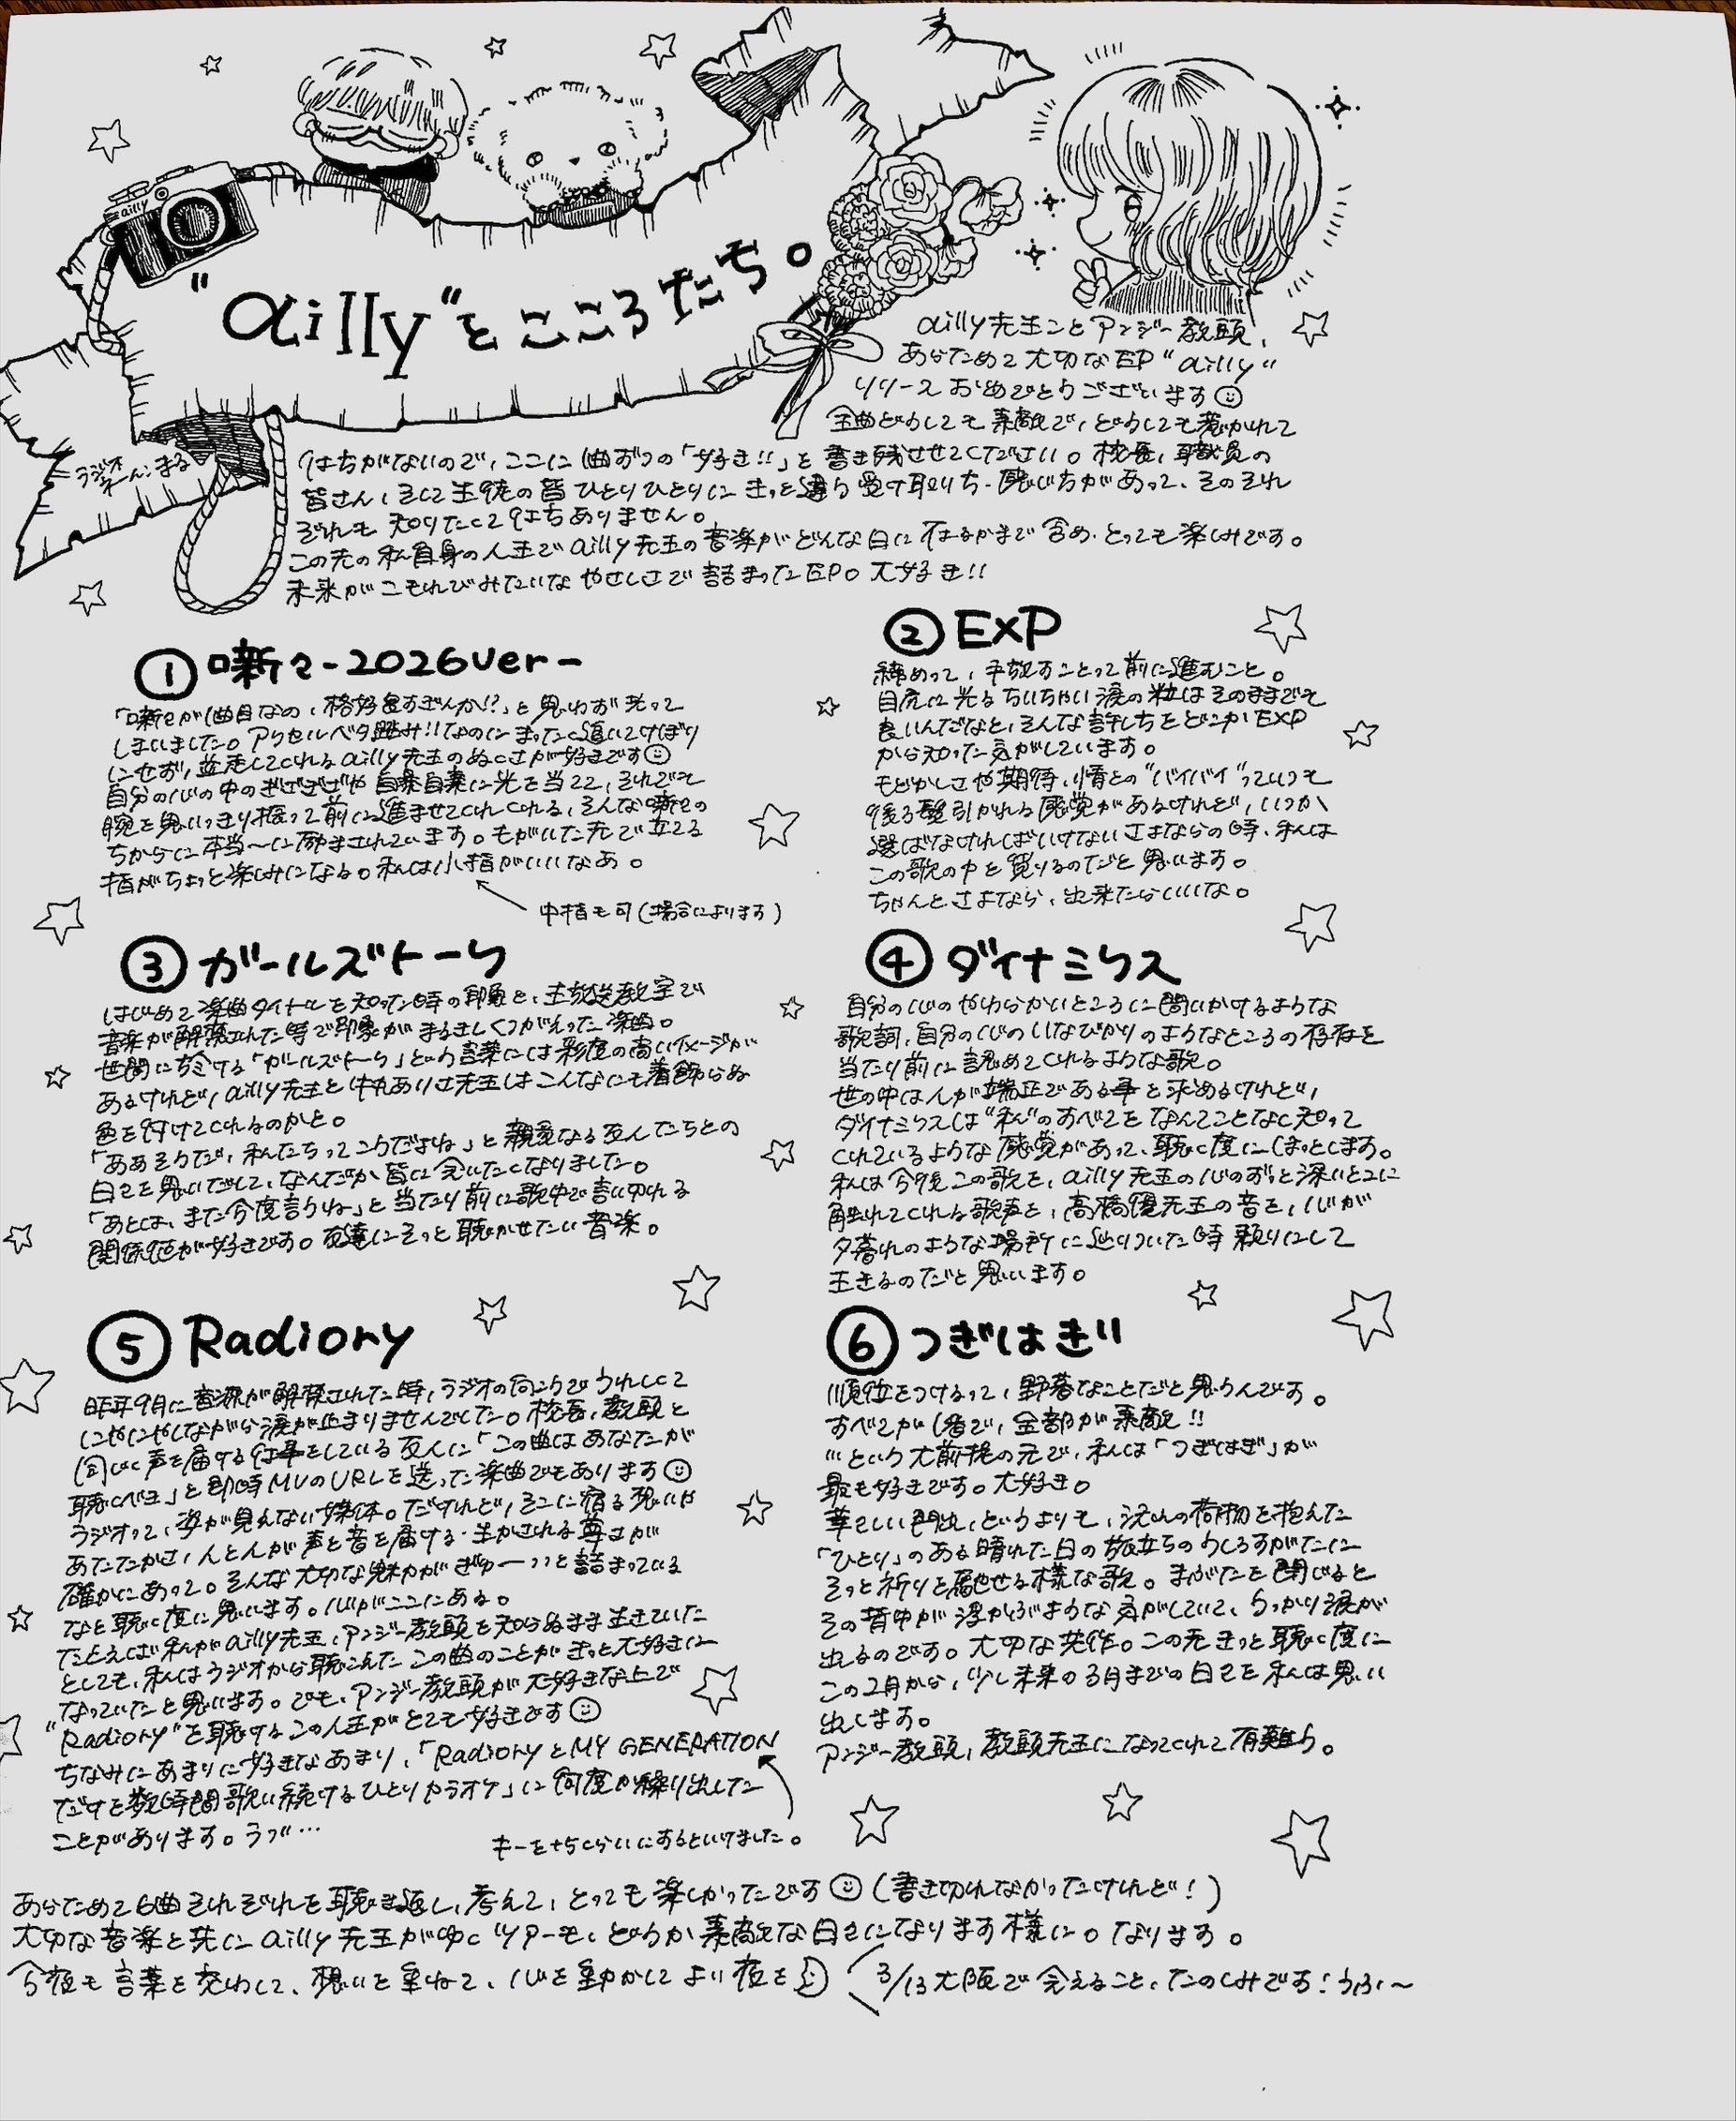 ailly
"ailly"とこころたち。
ラジオ
ねーむ:まる
ailly先生ことアンジー教頭、
あらためて大切なEP"ailly"
リリースおめでとうございます
全曲どうしても素敵で、どうしても惹かれて
仕方がないので、ここに1曲ずつの「好き!!」を書き残させてください。校長、職員の
皆さん、そして生徒の皆ひとりひとりにきっと違う受け取り方・感じ方があって、そのそれ
ぞれも知りたくて仕方ありません。
この先の私自身の人生でailly先生の音楽がどんな日に在るかまで含め、とっても楽しみです。
未来がこもれびみたいなやさしさで詰まったEP。大好き!!
①噺々-2026ver-
「噺々が1曲目なの、格好良すぎんか!?」と思わず光って
しまいました。アクセルベタ踏み!!なのにまったく追いてけぼり
にせず、並走してくれるailly先生のぬくさが好きです
自分の心の中のぎざぎざや自業自棄に光を当てて、それでも
腕を思いっきり振って前に進ませてくれくれる、そんな噺々の
ちからに本当〜に励まされています。もがいた先で立てる
指がちょっと楽しみになる。私は小指がいいなあ。
中指も可(場合によります)
②EXP
締めって、手放すことって前に進むこと。
目尻に光るちいちゃい涙の粒はそのままでも
良いんだなと、そんな許し方をどこかEXP
から知った気がしています。
もどかしさや期待、情との"バイバイ"っていつも
後ろ髪引かれる感覚があるけれど、いつか
選ばなければいけないさよならの時、私は
この歌の中を覗けるのだと思います。
ちゃんとさよなら、出来たらいいな。
③ガールズトーク
はじめて楽曲タイトルを知った時の印象と、生放送教室で
音楽が解禁された時で印象がまるきしくつがえった楽曲。
世間に対する「ガールズトーク」という言葉には彩度の高いイメージが
あるけれど、ailly先生と牛丸ありさ先生はこんなにも着飾らぬ
色を付けてくれるのかと。
「ああそうだ、私たちってこうだよね」と親愛なる友人たちとの
日々を思いだして、なんだか皆に会いたくなりました。
「あとは、また今度言うね」と当たり前に歌中で言い切れる
関係値が好きです。友達にそっと聴かせたい音楽。
④ダイナミクス
自分の心のやわらかいところに問いかけるような
歌詞、自分の心のいなびかりのようなところの存在を
当たり前に認めてくれるような歌。
世の中は人が端正である事を求めるけれど、
ダイナミクスは"私"のすべてをなんてことなく知って
くれているような感覚があって、聴く度にほっとします。
私は今後この歌を、ailly先生の心のずっと深いとこに
触れてくれる歌声を、高橋優先生の音を、心が
夕暮れのような場所に辿りついた時頼りにして
生きるのだと思います。
⑤Radiory
昨年9月に音源が解禁された時、ラジオの向こうでうれしくて
にやにやしながら涙が止まりませんでした。校長、教頭と
同じく声を届ける仕事をしている友人に「この曲はあなたが
聴くべき」と即時MVのURLを送った楽曲でもあります
ラジオって、姿が見えない媒体。だけれど、そこに宿る想いや
あたたかさ、人と人が声と音を届ける・生かされる尊さが
確かにあって。そんな大切な魅力がぎゅーっっと詰まっている
なと聴く度に思います。心がここにある。
たとえば私がailly先生、アンジー教頭を知らぬまま生きていた
としても、私はラジオから聴こえたこの曲のことがきっと大好きに
なっていたと思います。でも、アンジー教頭が大好きな上で
"Radiory"を聴けるこの人生がとても好きです
ちなみにあまりに好きなあまり、「RadioryとMY GENERATION
だけを数時間歌い続けるひとりカラオケ」に何度か繰り出した
ことがあります。ラブ…
キーを+5くらいにするといけました。
⑥つぎはぎ
順位をつけるって、野暮なことだと思うんです。
すべてが1番で、全部が素敵!!
…という大前提の元で、私は「つぎはぎ」が
最も好きです。大好き。
華々しい門出、というよりも、沢山の荷物を抱えた
「ひとり」のある晴れた日の旅立ちのうしろすがたに
そっと祈りを馳せる様な歌。まぶたを閉じると
その背中が浮かぶような気がしていて、うっかり涙が
出るのです。大切な英作。この先きっと聴く度に
この2月から、少し未来の3月までの日々を私は思い
出します。
アンジー教頭、教頭先生になってくれて有難う。
あらためて6曲それぞれを聴き返し、考えて、とっても楽しかったです(書き切れなかったけれど!)
大切な音楽と共にailly先生がゆくツアーも、どうか素敵な日々になります様に。なります。
今夜も言葉を交わして、想いを重ねて、心を動かしてよい夜を
3/13大阪で会えること、たのしみです!うふ〜